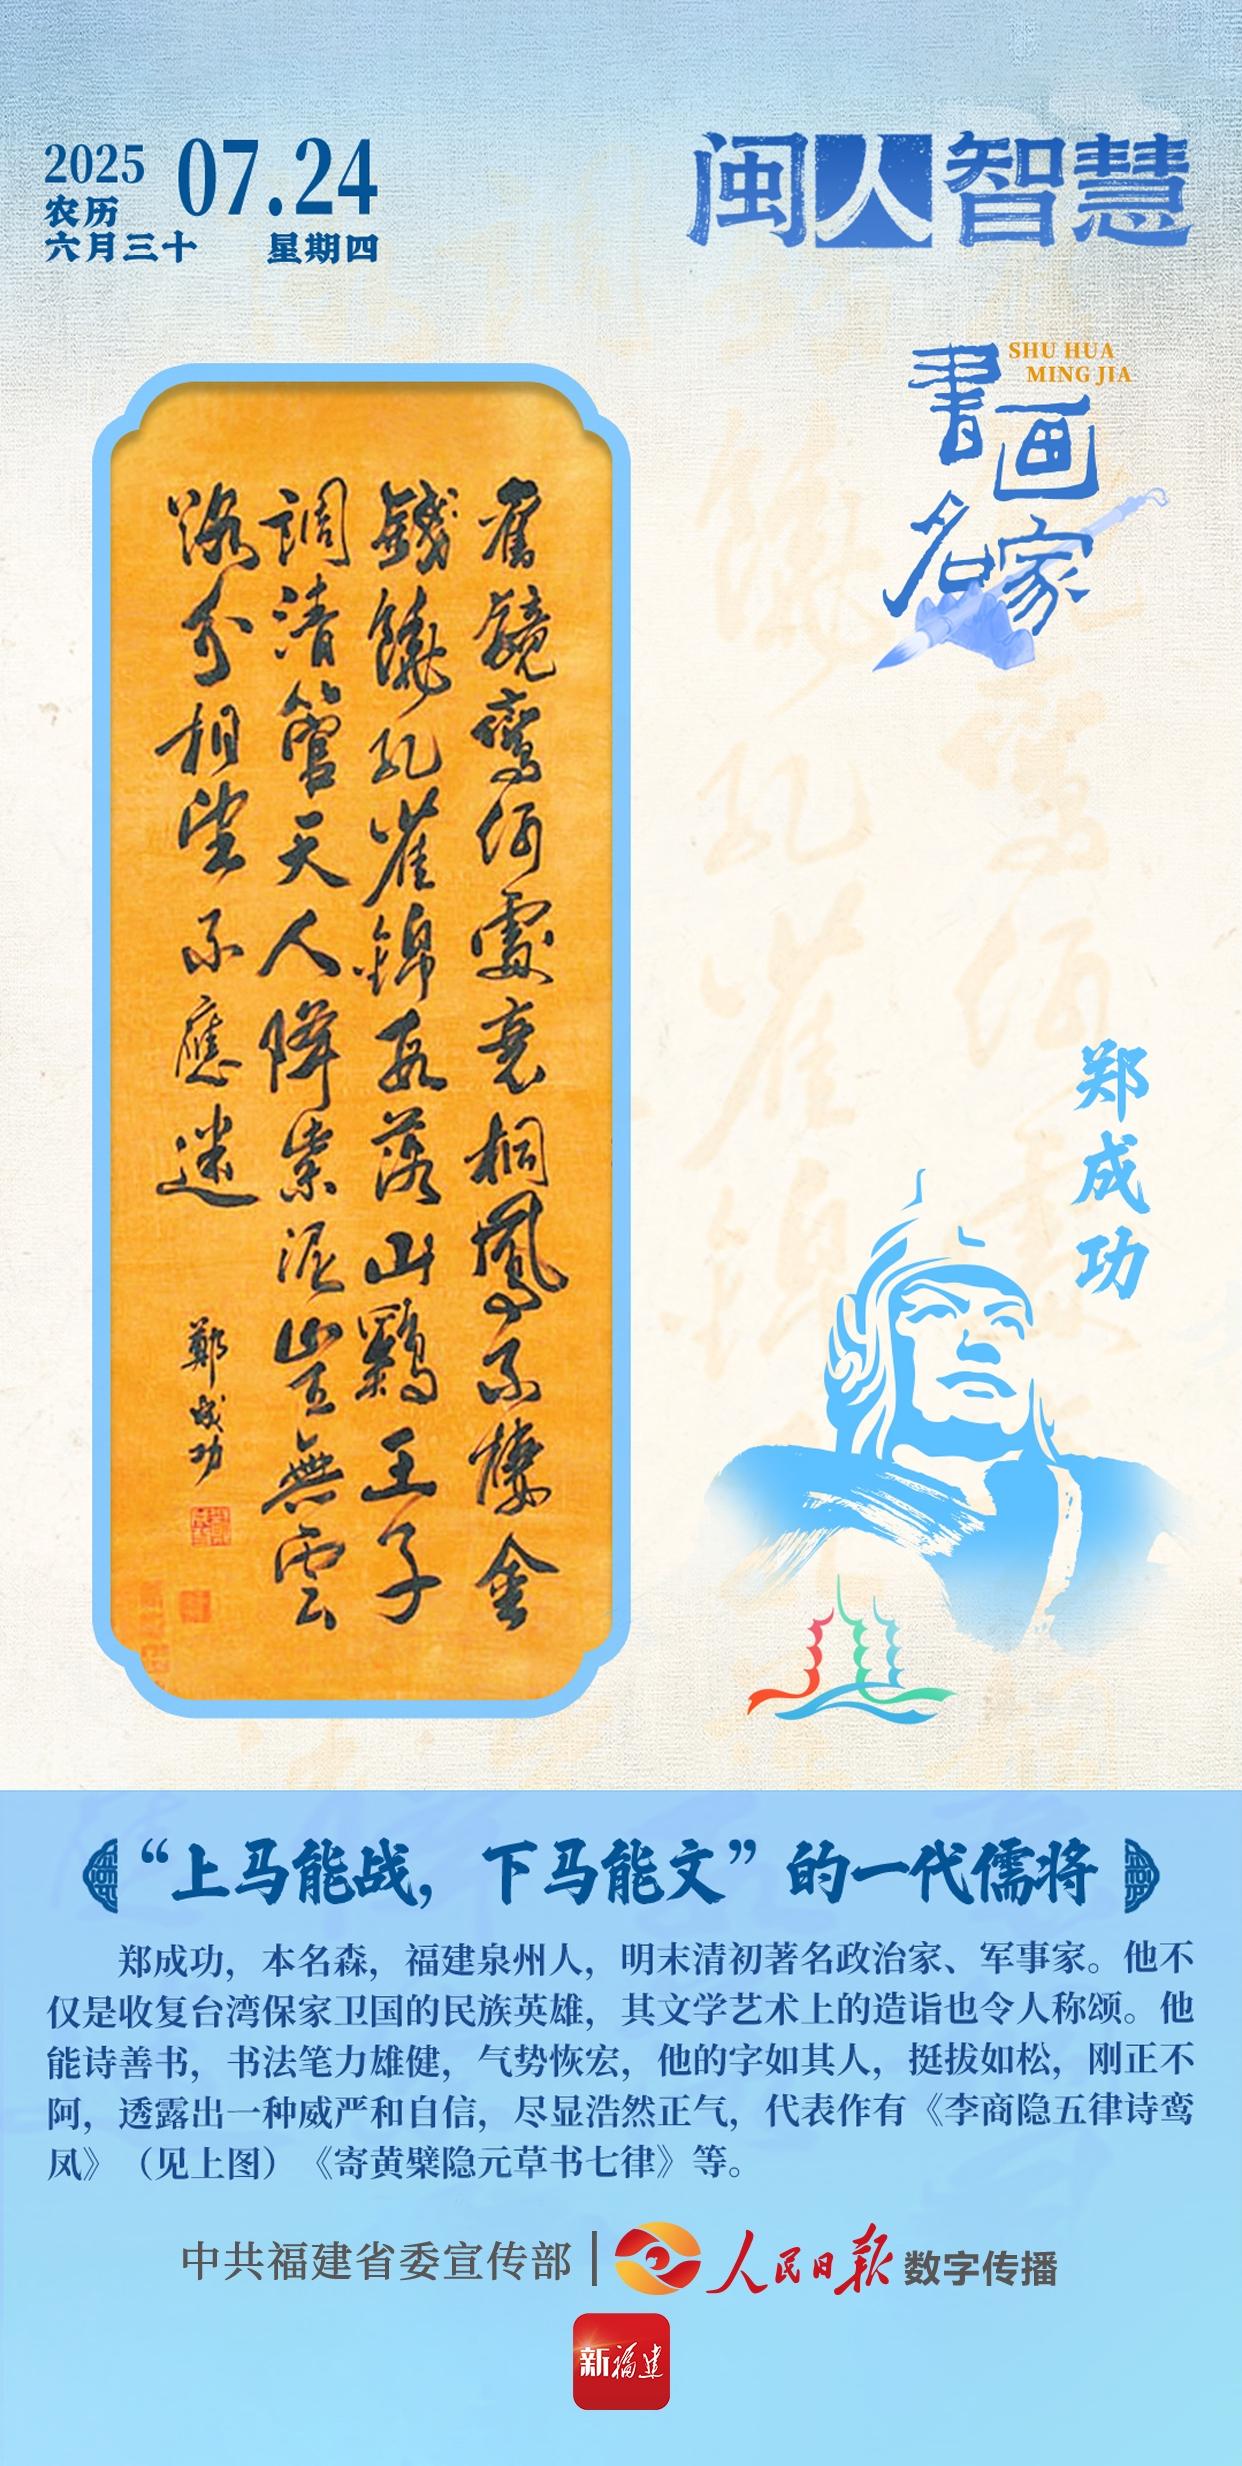 2025
07.24
农历
六月三十 星期四
闽人智慧
書画名家
SHU HUA
MING JIA
舊鏡鸞何處衰桐鳳不棲金
錢饒孔雀錦段落山鷄王子
調清管天人降紫泥豈無雲
路分相望不應迷
鄭成功
郑成功
“上马能战，下马能文”的一代儒将
郑成功，本名森，福建泉州人，明末清初著名政治家、军事家。他不
仅是收复台湾保家卫国的民族英雄，其文学艺术上的造诣也令人称颂。他
能诗善书，书法笔力雄健，气势恢宏，他的字如其人，挺拔如松，刚正不
阿，透露出一种威严和自信，尽显浩然正气，代表作有《李商隐五律诗鸾
凤》（见上图）《寄黄檗隐元草书七律》等。
中共福建省委宣传部 | 人民日报 数字传播
新福建